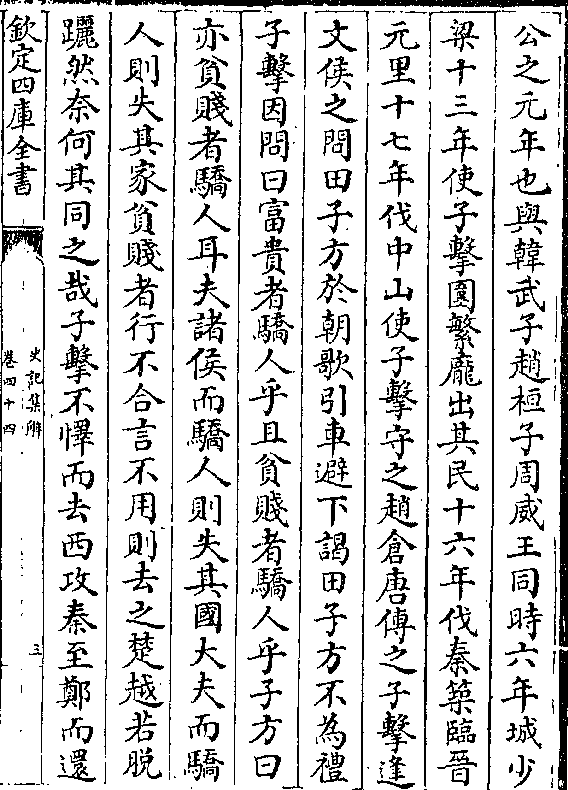 公之元年也與韓武子趙桓子周威王同時六年城少
梁十三年使子擊圍繁龐出其民十六年伐秦築臨晉
元里十七年伐中山使子擊守之趙倉唐傅之子擊逢
文侯之問田子方於朝歌引車避下謁田子方不為禮
子擊因問曰富貴者驕人乎且貧賤者驕人乎子方曰
亦貧賤者驕人耳夫諸侯而驕人則失其國大夫而驕
人則失其家貧賤者行不合言不用則去之楚越若脫
躧然奈何其同之哉子擊不懌而去西攻秦至鄭而還
欽定四庫全書
史記集解
卷四十四
三